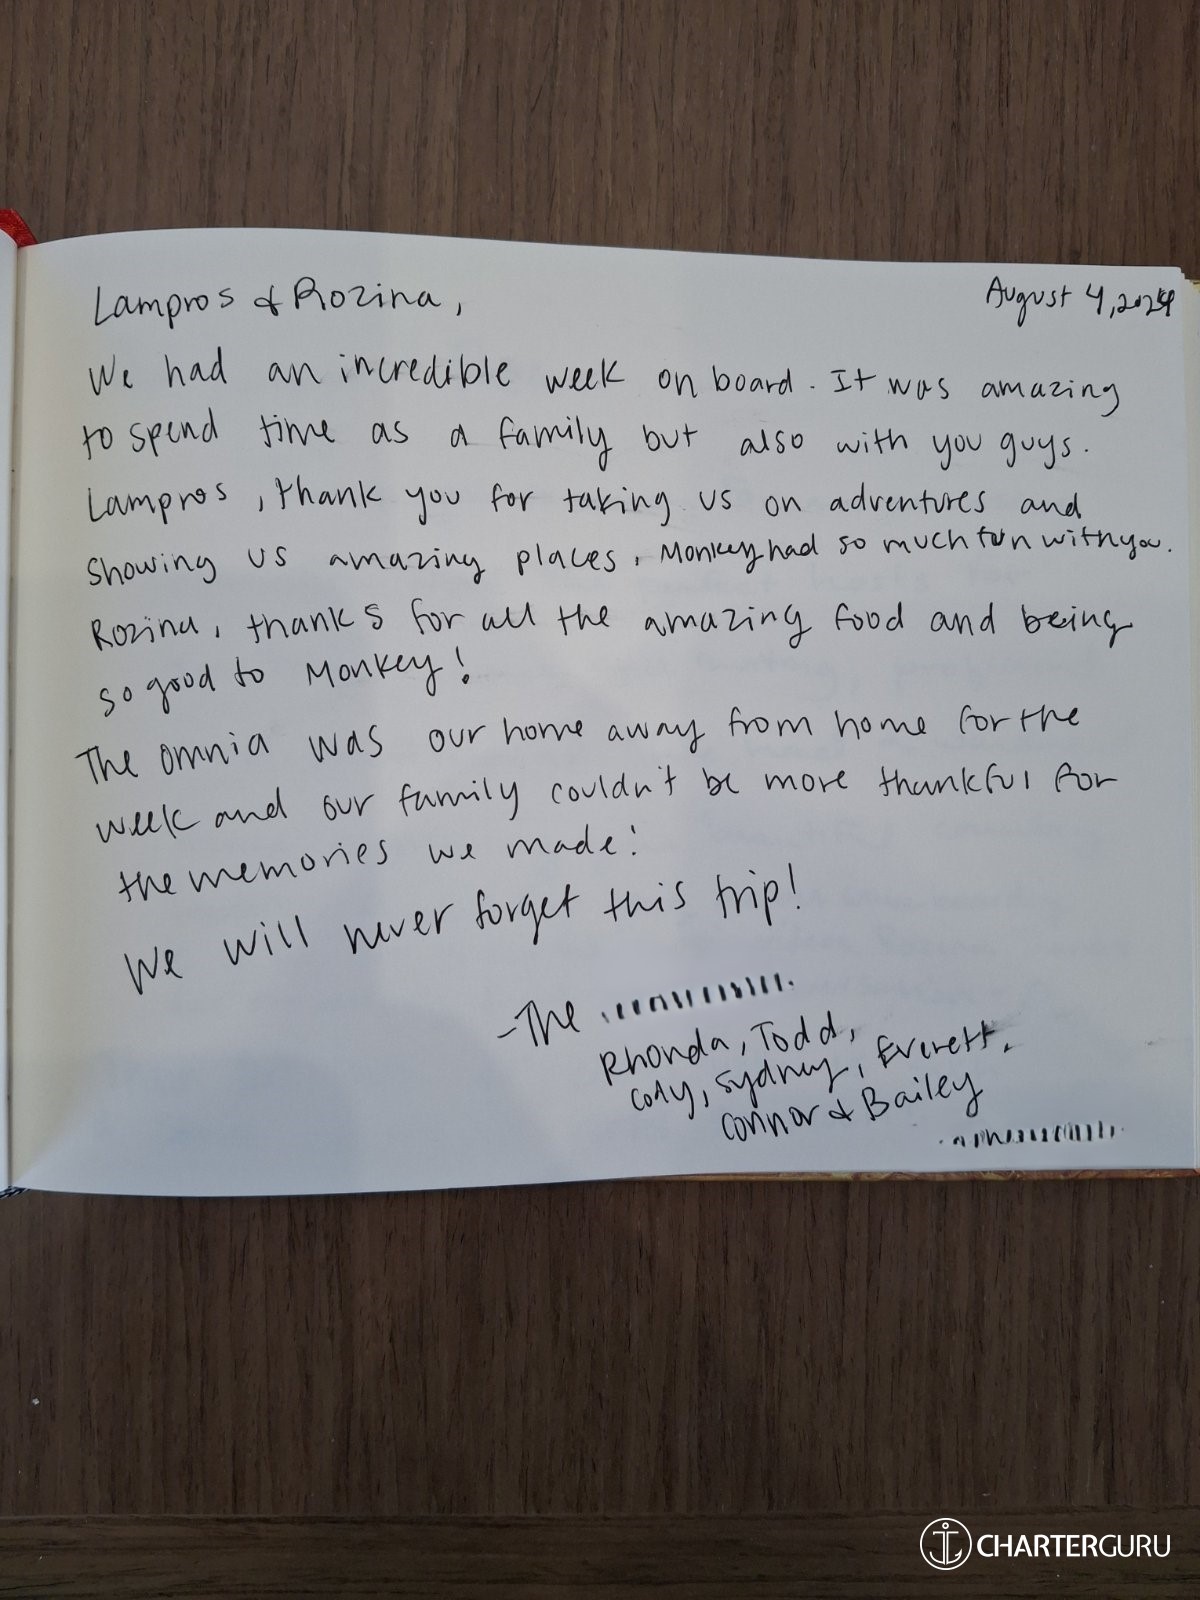 August 4, 2024
Lampros & Rozina,
We had an incredible week on board. It was amazing
to spend time as a family but also with you guys.
Lampros, thank you for taking us on adventures and
showing us amazing places. Monkey had so much fun with you.
Rozina, thanks for all the amazing food and being
so good to Monkey!
The Omnia was our home away from home for the
week and our family couldn't be more thankful for
the memories we made!
We will never forget this trip!
-The
Rhonda, Todd,
Cody, Sydney, Everett,
Connor & Bailey
CHARTERGURU